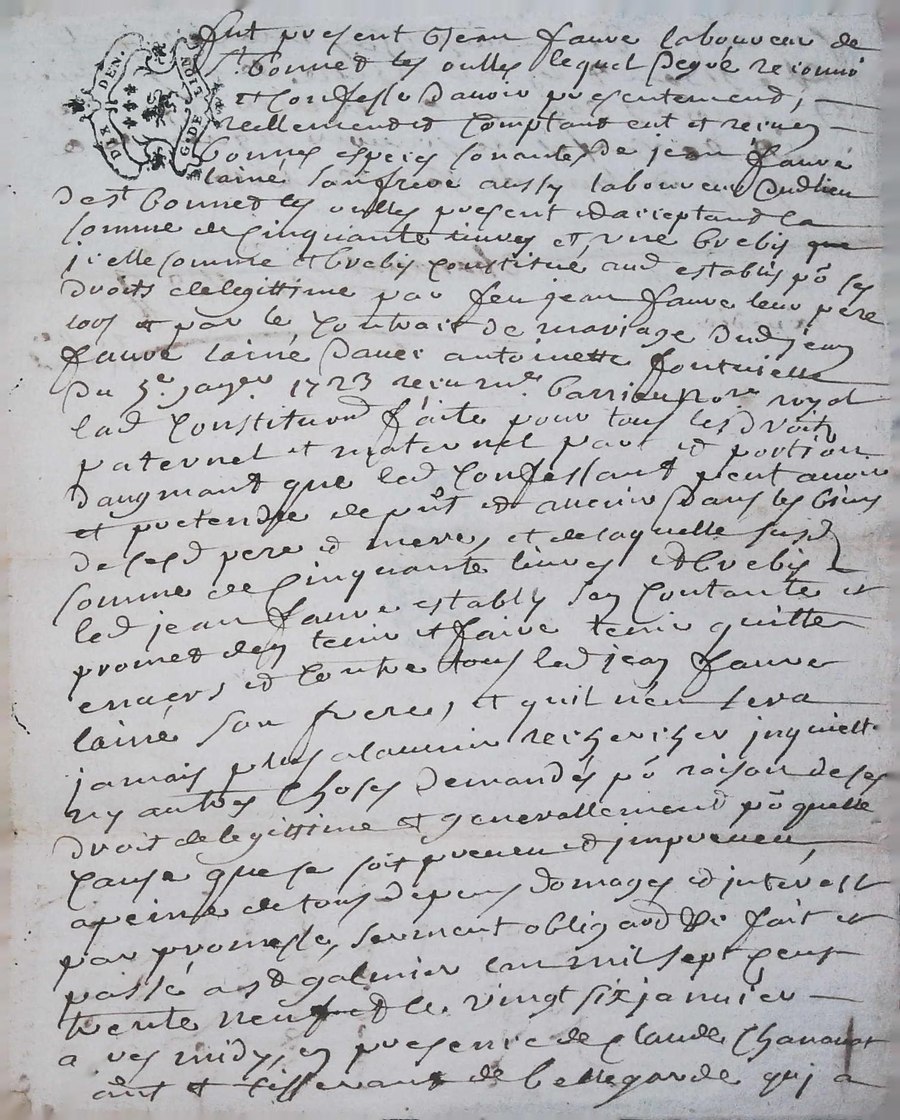 DIX DEN. G. DE NOIT
fut present Jean fauve laboureur de
st bonnet les oulles lequel de gré reconnû
et confesse d'avoir presentement,
reellement et comptant eut et receu en
bonnes especes sonantes de jean fauve
lainé son frere aussy laboureur dudlieu
de st bonnet les oulles present et acceptand la
somme de cinquante livres et une brebis que
jcelle somme et brebis constitué aud estably po ses
droits de legittime par feu jean fauve leur pere
et par le contrait de mariage dud jean
fauve lainé d'avec antoinette
du 5e janer 1723 receu me barrieu nore royal
lad constituon faite pour tous les droits
paternel et maternel part et portion
daugmant que led confessant peut avoir
et pretendre de pnt et advenir dans les biens
de sesd pere et mere, et de laquelle susd
somme de cinquante livres et brebis
led jean fauve estably sen contante et
promet den tenir et faire tenir quitte
envers et contre tous led jean fauve
lainé son frere, et quil nen sera
jamais plus aladvenir recherché inquiett
ny autres choses demandés po raison de ses
droit de legittime et generallement po quelle
cause que se soit preveu et impreveu,
a peine de tous depens domages et interest
par promesse, serment obligaon &c fait et
passé a st galmier lan mil sept cent
trente neuf et le vingt six janvier
a ves midy, en presence de claude
tisserant de bellegarde qui a